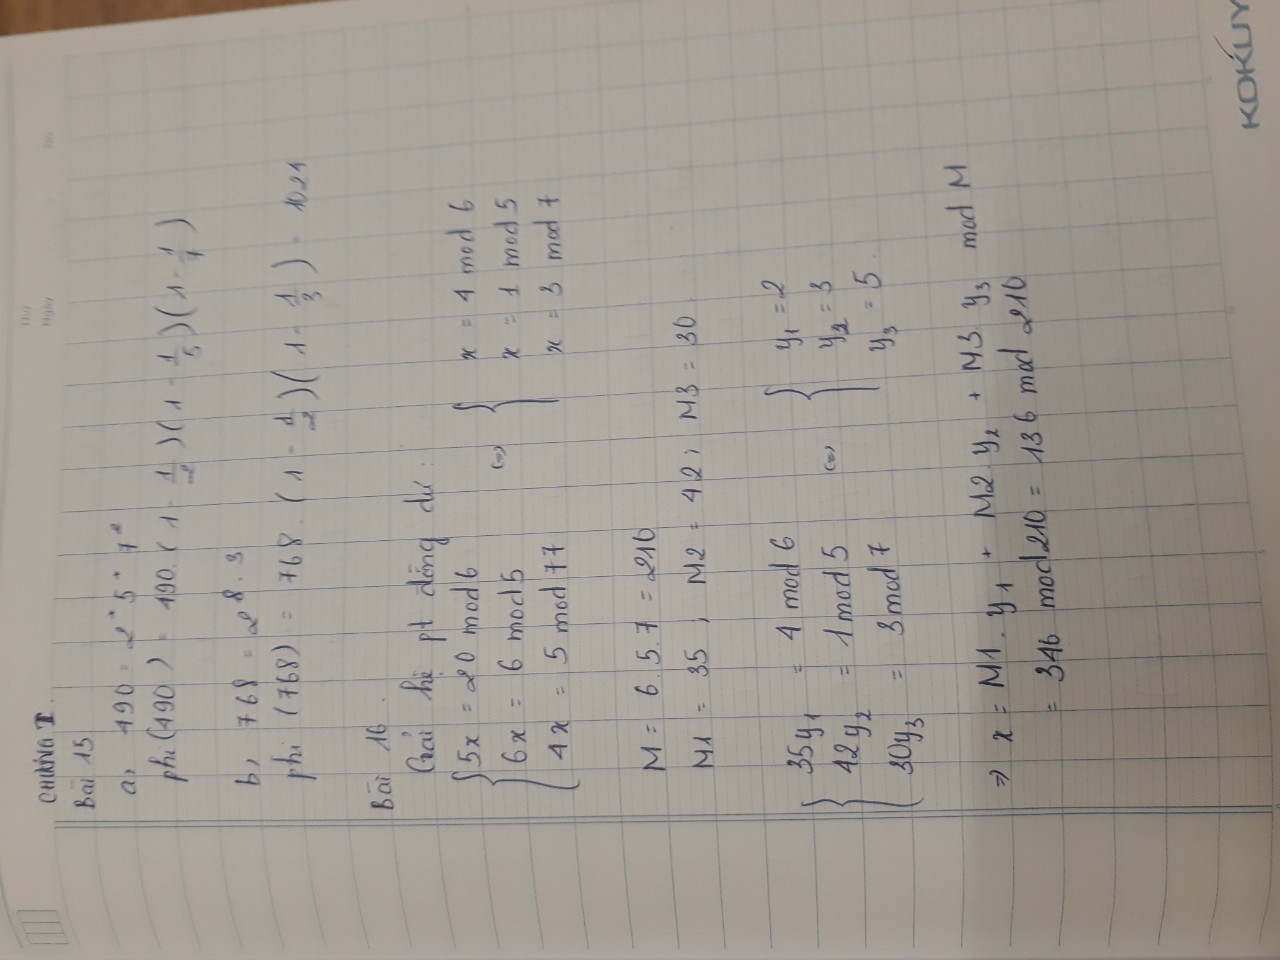 CHƯƠNG I.
Bài 15
a, 490 = 2 . 5 . 7²
phi(490) = 490.(1 - 1/2)(1 - 1/5)(1 - 1/7)
b, 768 = 2⁸ . 3
phi (768) = 768. (1 - 1/2)(1 - 1/3) = 1021
Bài 16.
Giải hệ pt đồng dư:
{ 5x = 20 mod 6 (=) { x = 4 mod 6
6x = 6 mod 5 x = 1 mod 5
4x = 5 mod 77 x = 3 mod 7
M = 6.5.7 = 210
M1 = 35; M2 = 42; M3 = 30
{ 35y₁ = 4 mod 6 (=) { y₁ = 2
42y₂ = 1 mod 5 y₂ = 3
30y₃ = 3 mod 7 y₃ = 5.
=> x = M1.y₁ + M2.y₂ + M3.y₃ mod M
= 346 mod 210 = 136 mod 210
KOKUY